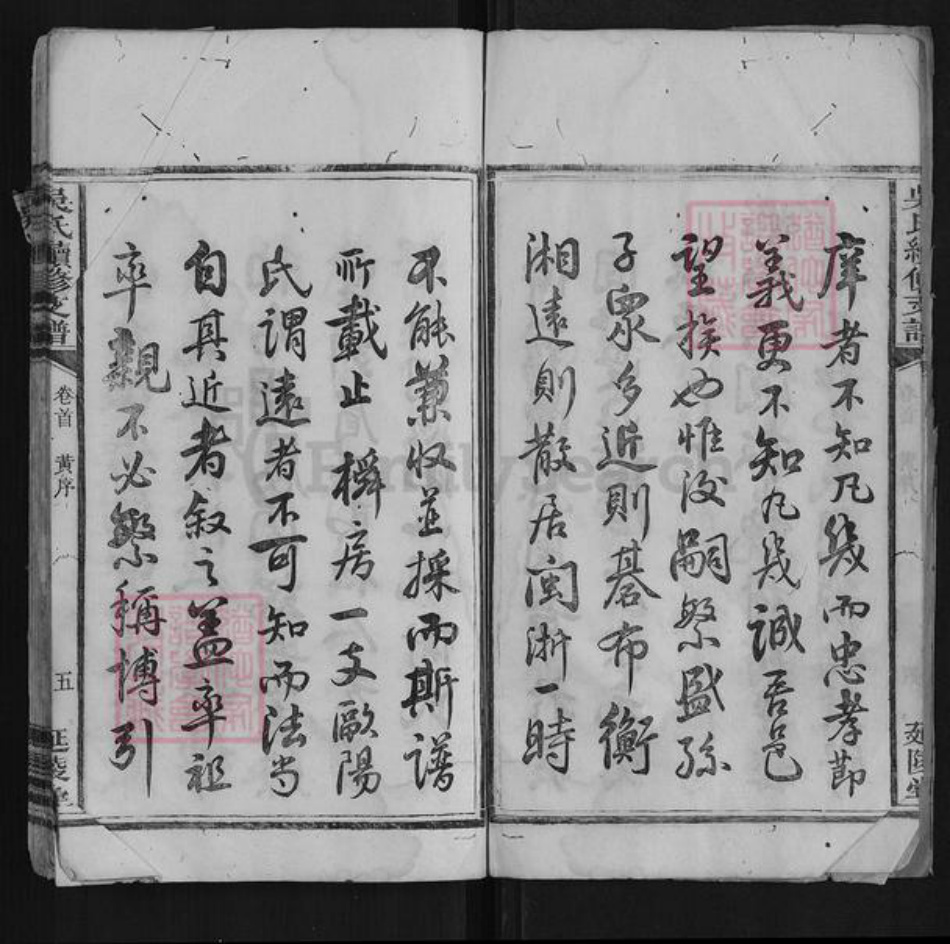 庠者不知凡幾而忠孝節
義更不知凡幾誠吾邑
望族也惟後嗣繁盛孫
子眾多近則碁布衡
湘遠則散居閩浙一時
不能兼收並採而斯譜
所載止樽房一支歐陽
氏謂遠者不可知而法當
自其近者叙之蓋率祖
率親不必繁稱博引
吳氏續修支譜
卷首 黃序
五
延陵堂
FamilySearch